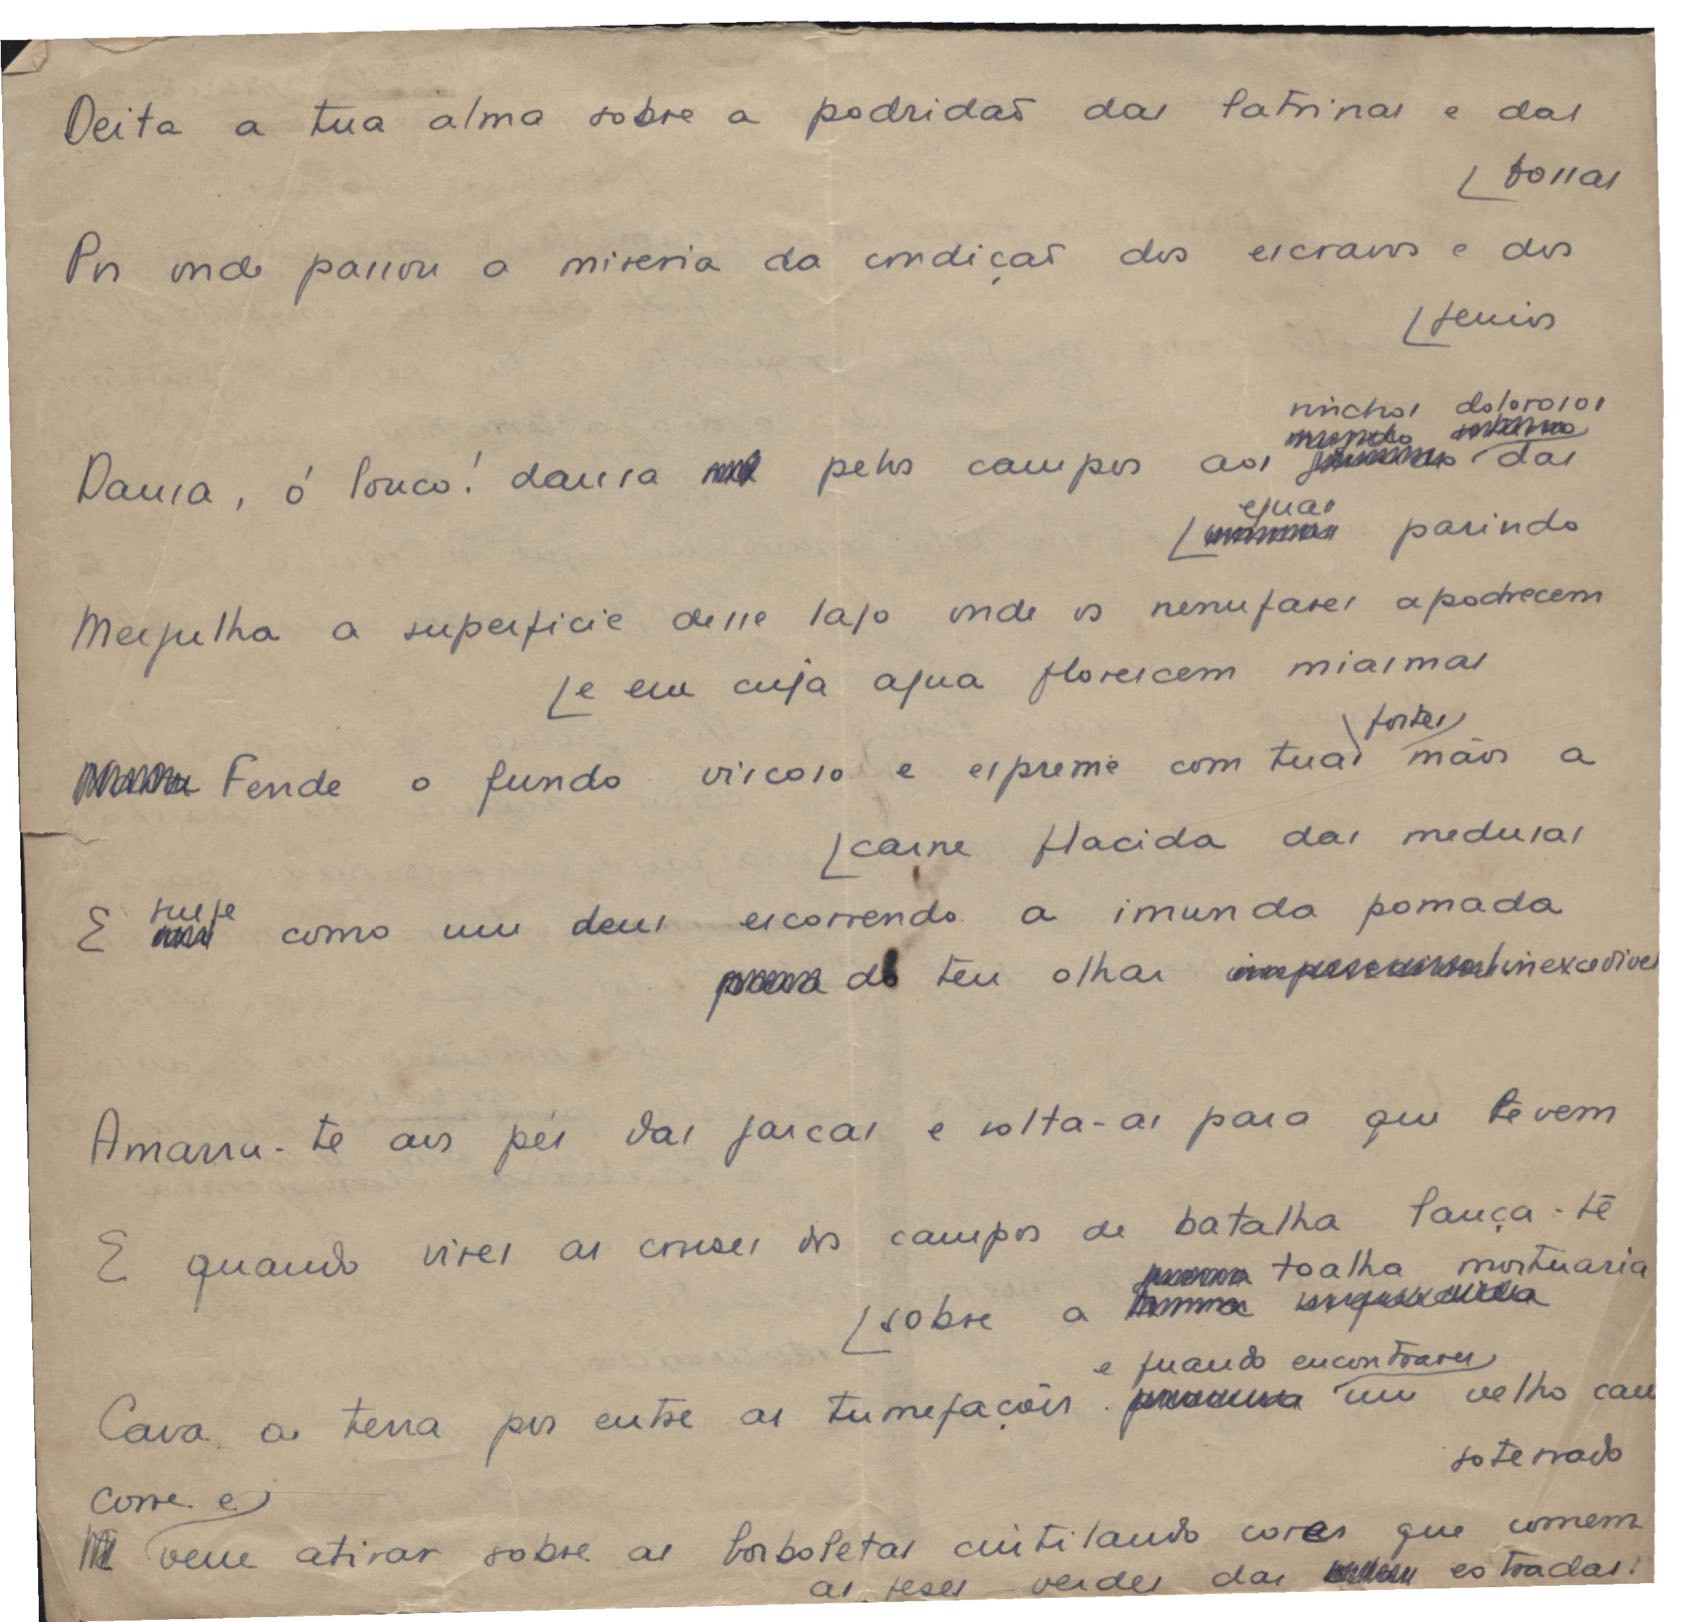 Deita a tua alma sobre a podridão das latrinas e das
[fossas
Por onde passou a miseria da condição dos escravos e dos
[genios
rinchos dolorosos
Dansa, ó louco! dansa pelos campos aos das
eguas
[ parindo
Mergulha a superficie desse lago onde os nenufares apodrecem
[e em cuja agua florescem miasmas
fortes
Fende o fundo viscoso e espreme com tuas mãos a
[carne flacida das medusas
surge
E como um deus escorrendo a imunda pomada
do teu olhar inexcedivel
Amarra-te aos pés das garças e solta-as para que te levem
E quando vires as cruzes dos campos de batalha lança-te
toalha mortuaria
[sobre a
e quando encontrares
Cava a terra por entre as tumefações um velho cau
soterrado
corre e
vem atirar sobre as borboletas cintilando cores que comem
as fezes verdes das estradas!